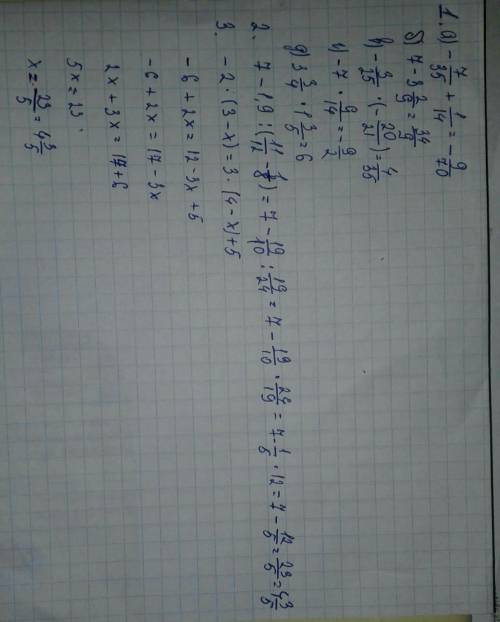 1. а) - 7/35 + 1/14 = - 9/70
б) 7 - 3 2/9 = 34/9
в) - 3/25 · (- 20/21) = 4/35
г) - 7 · 9/14 = - 9/2
д) 3 3/4 · 1 3/5 = 6
2. 7 - 1,9 : (11/11 - 1/8) = 7 - 19/10 : 19/24 = 7 - 19/10 · 24/19 = 7 - 1/5 · 12 = 7 - 12/5 = 23/5 = 4 3/5
3. - 2 · (3 - x) = 3 · (4 - x) + 5
- 6 + 2x = 12 - 3x + 5
- 6 + 2x = 17 - 3x
2x + 3x = 17 + 6
5x = 23.
x = 23/5 = 4 3/5